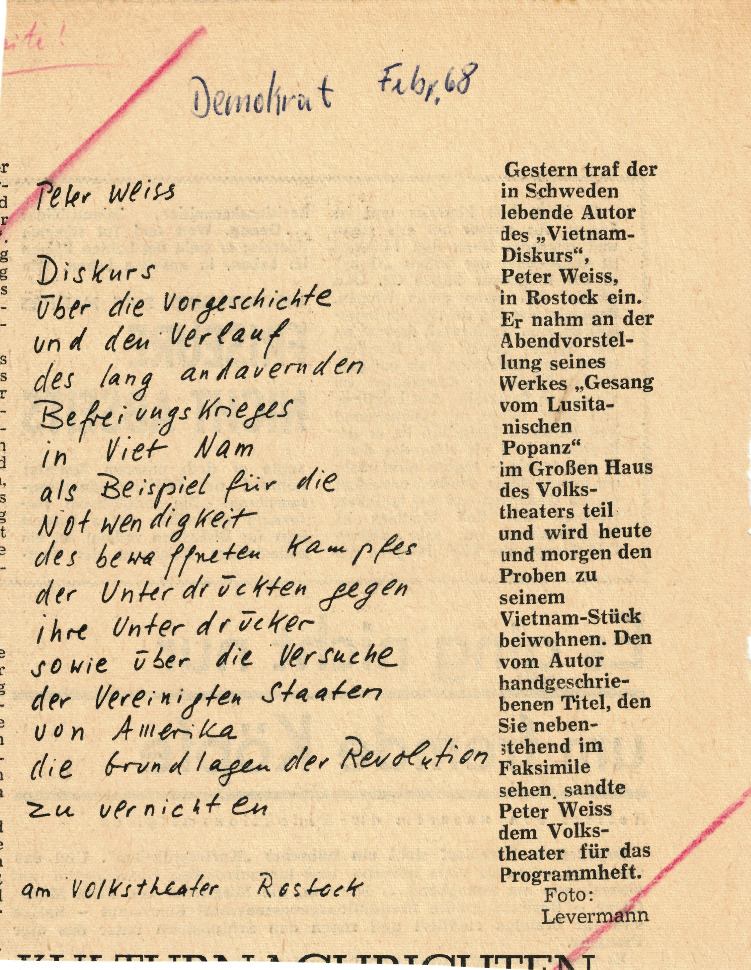 Demokrat Febr. 68
Peter Weiss
Diskurs
über die Vorgeschichte
und den Verlauf
des lang andauernden
Befreiungskrieges
in Viet Nam
als Beispiel für die
Notwendigkeit
des bewaffneten Kampfes
der Unterdrückten gegen
ihre Unterdrücker
sowie über die Versuche
der Vereinigten Staaten
von Amerika
die Grundlagen der Revolution
zu vernichten
am Volkstheater Rostock
Gestern traf der
in Schweden
lebende Autor
des „Vietnam-
Diskurs“,
Peter Weiss,
in Rostock ein.
Er nahm an der
Abendvorstel-
lung seines
Werkes „Gesang
vom Lusita-
nischen
Popanz“
im Großen Haus
des Volks-
theaters teil
und wird heute
und morgen den
Proben zu
seinem
Vietnam-Stück
beiwohnen. Den
vom Autor
handgeschrie-
benen Titel, den
Sie neben-
stehend im
Faksimile
sehen, sandte
Peter Weiss
dem Volks-
theater für das
Programmheft.
Foto:
Levermann
KULTURNACHRICHTEN